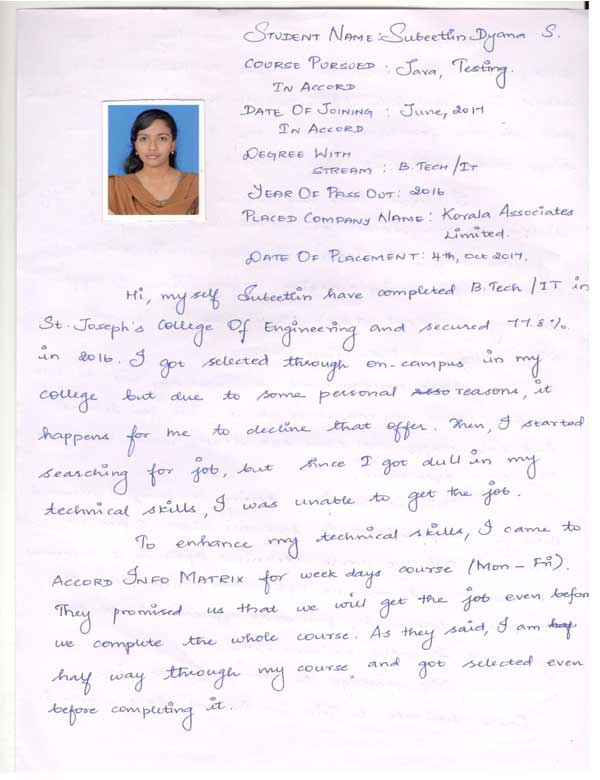 STUDENT NAME: Subeetlin Dyana S.
COURSE PURSUED : Java, Testing.
IN ACCORD
DATE OF JOINING : June, 2017
IN ACCORD
DEGREE WITH
STREAM : B.TECH/IT
YEAR OF PASS OUT: 2016
PLACED COMPANY NAME : Kovala Associates
Limited.
DATE OF PLACEMENT: 4th, Oct 2017.
Hi, my self Subeetlin have completed B.Tech/IT in
St. Joseph's College Of Engineering and secured 77.8%.
in 2016. I got selected through on-campus in my
college but due to some personal reasons, it
happens for me to decline that offer. Then, I started
searching for job, but since I got dull in my
technical skills, I was unable to get the job.
To enhance my technical skills, I came to
ACCORD INFO MATRIX for week days course (Mon - Fri).
They promised us that we will get the job even before
we complete the whole course. As they said, I am
half way through my course and got selected even
before completing it.